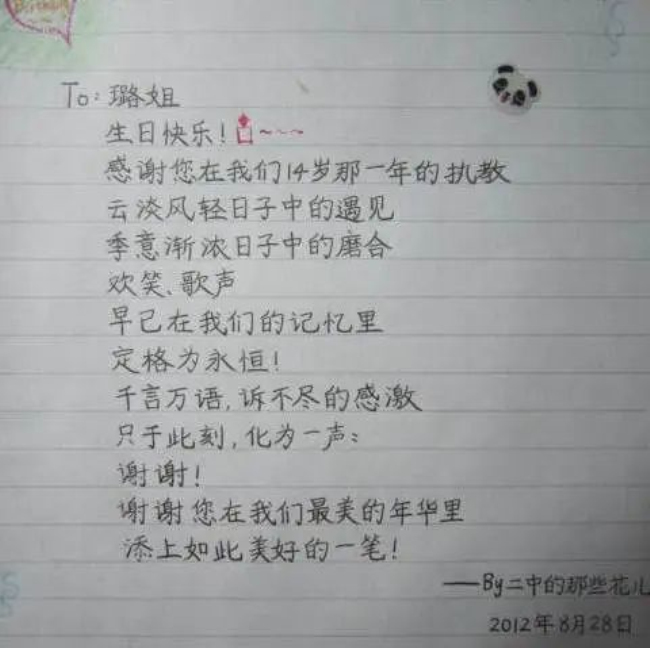 To: 璐姐
生日快乐!
感谢您在我们14岁那一年的执教
云淡风轻日子中的遇见
季意渐浓日子中的磨合
欢笑、歌声
早已在我们的记忆里
定格为永恒!
千言万语,诉不尽的感激
只于此刻,化为一声:
谢谢!
谢谢您在我们最美的年华里
添上如此美好的一笔!
——By二中的那些花儿
2012年8月28日